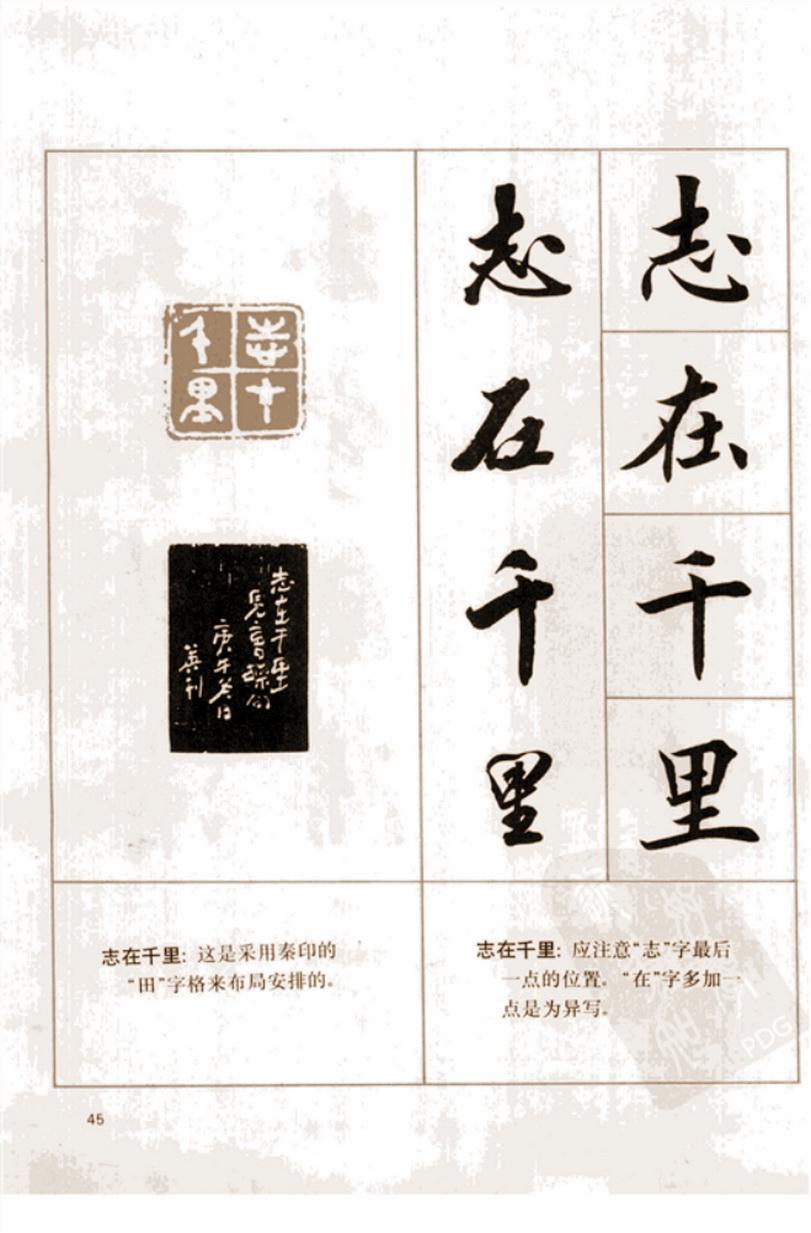 志在千里
志在千里
志在千里
志在千里
庚午冬日
刊
志在千里：这是采用秦印的
“田”字格来布局安排的。
志在千里：应注意“志”字最后
一点的位置。“在”字多加一
点是为异写。
PDG
45